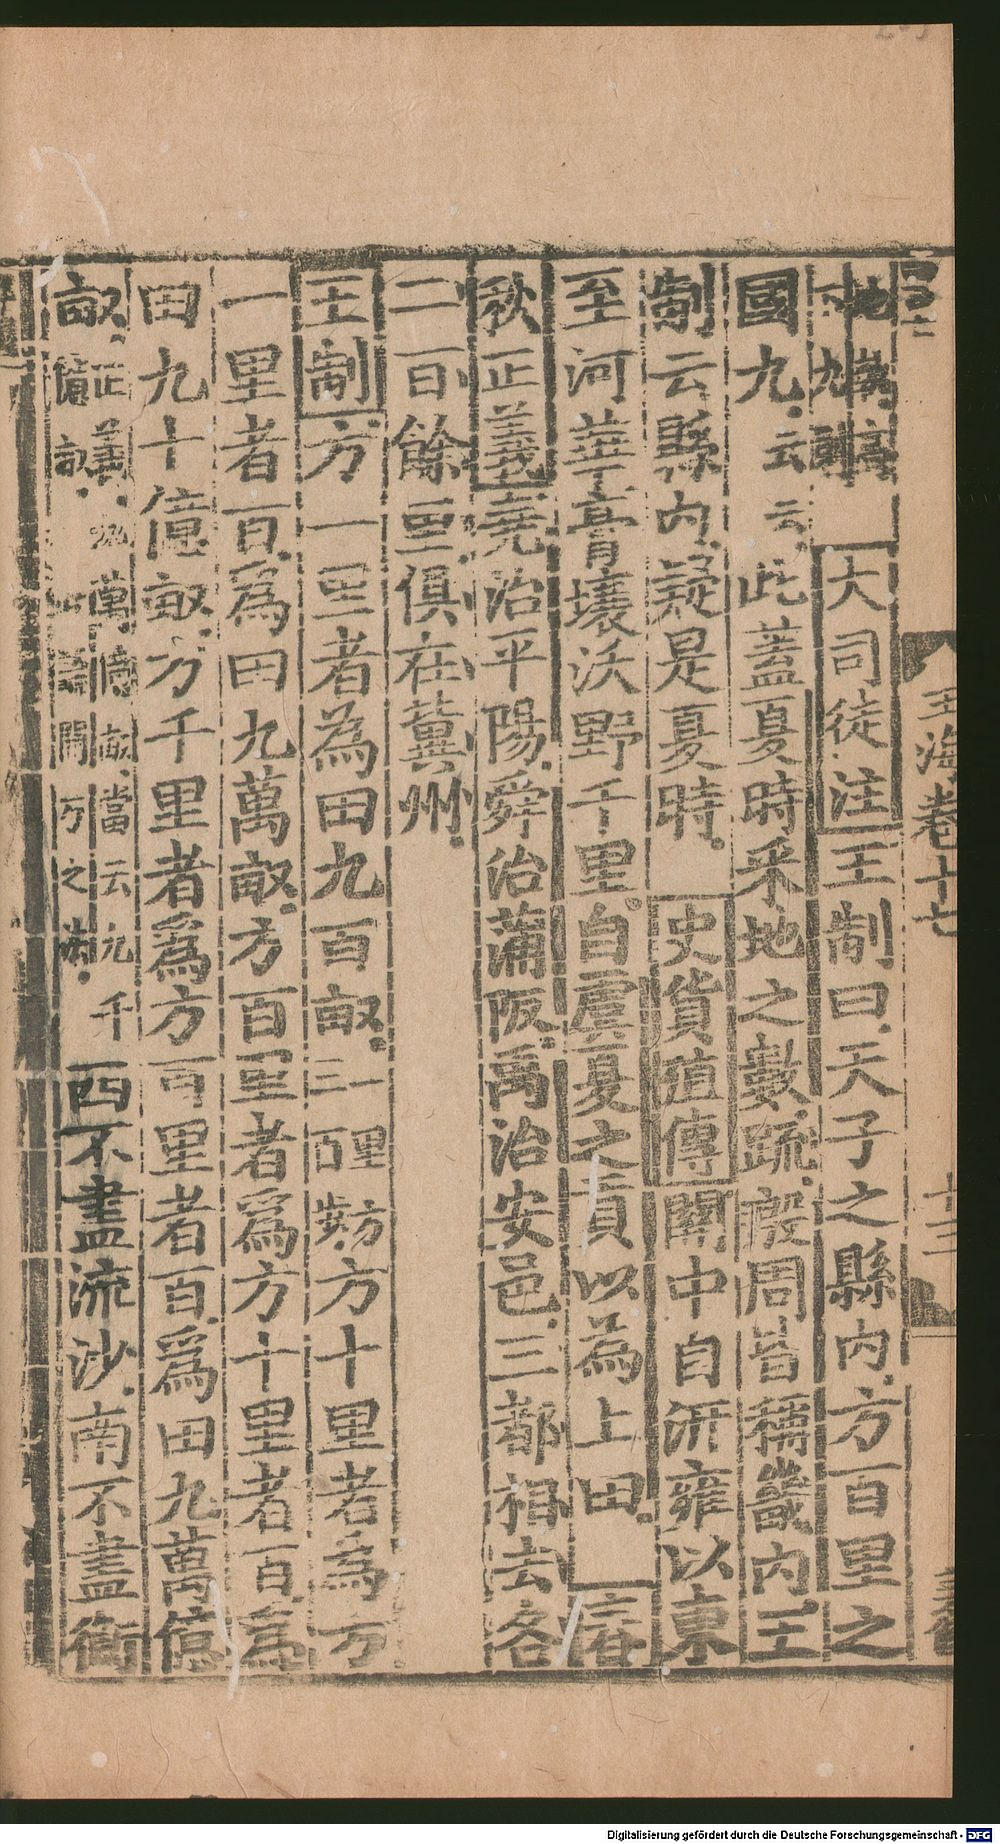 玉海卷十七
十三
大司徒注王制曰天子之縣内方百里之
國九云云此蓋夏時采地之數疏殷周皆稱畿内王
制云縣内疑是夏時 史貨殖傳關中自汧雍以東
至河華膏壤沃野千里自虞夏之貢以為上田 春
秋正義堯治平陽舜治蒲阪禹治安邑三都相去各
二百餘里俱在冀州
王制方一里者為田九百畝三百步方一里方十里者為方
一里者百爲田九萬畝方百里者爲方十里者百爲
田九十億畝方千里者爲方百里者百爲田九萬億
畝正義萬億畝當云九千
億畝
西不盡流沙南不盡衡
Digitalisierung gefördert durch die Deutsche Forschungsgemeinschaft - DFG